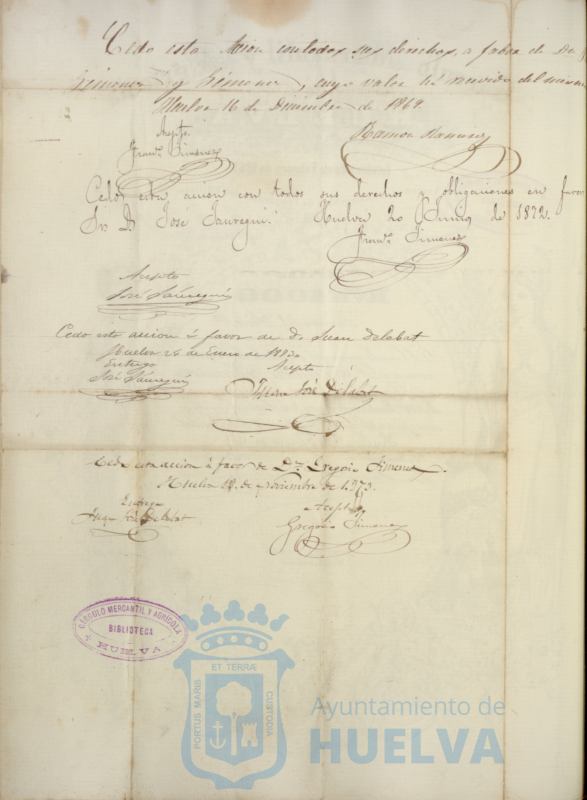 Cedo esta Accion con todos sus derechos, a favor de
Jimenez y Jimenez, cuyo valor hé recivido del mismo
Huelva 16 de Diciembre de 1869.
Acepto
Ramon
Franco. Jimenez
Cedo esta accion con todos sus derechos y obligaciones en favor
Sr. D. José Jauregui. Huelva 20 Junio de 1872.
Franco. Jimenez
Acepto
José Jáuregui
Cedo esta accion á favor de D. Juan Delabat
Huelva 28 de Enero de 1873.
Entrego
Acepto
José Jáuregui
Juan José Delabat
Cedo esta accion á favor de Dn. Gregorio Jimenez.
Huelva 12 de Noviembre de 1.873.
Entrego
Acepto
Juan José Delabat
Gregorio Jimenez
CÍRCULO MERCANTIL Y AGRÍCOLA
BIBLIOTECA
HUELVA
PORTUS MARIS ET TERRÆ CUSTODIA
Ayuntamiento de
HUELVA